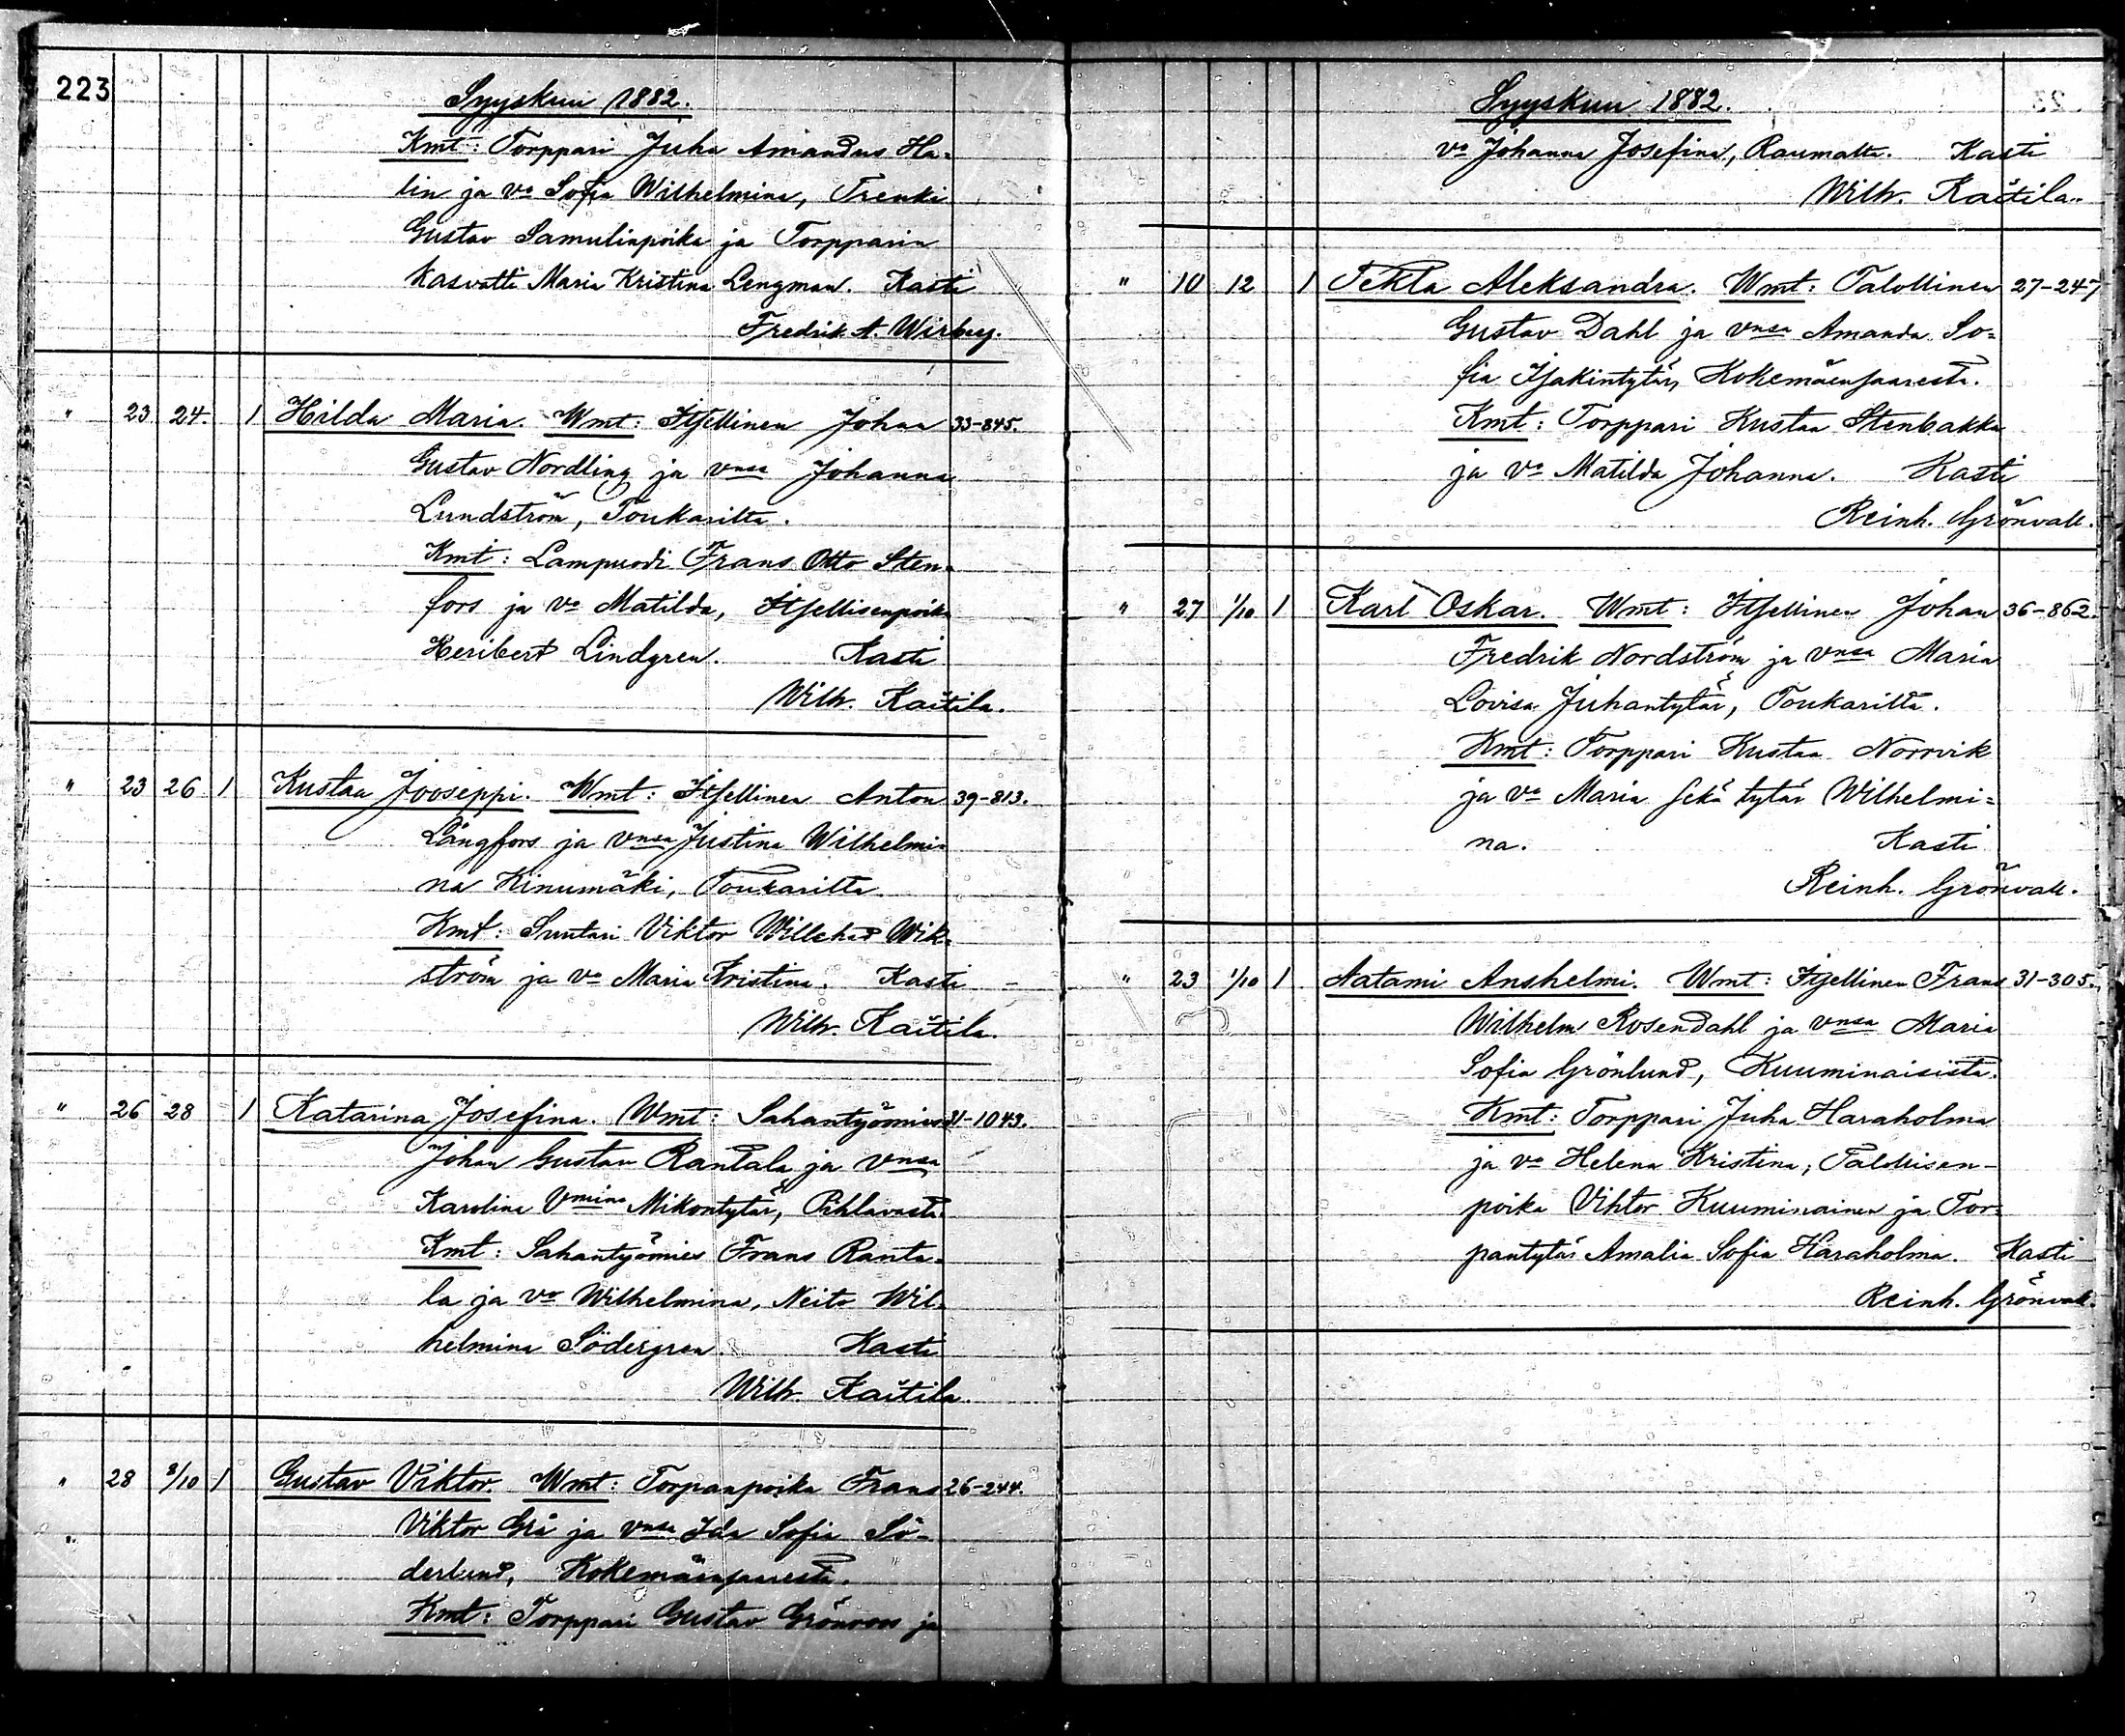 223
Syyskuu 1882.
Kmt: Torppari Juha Amandus Ha=
lin ja vo Sofia Wilhelmina, Trenki
Gustav Samulinpoika ja Torpparin
kasvatti Maria Kristina Lengman. Kasti
Fredrik A. Wirberg.
" 23 24. 1 Hilda Maria. Wmt: Itsellinen Johan 33-845.
Gustav Nordling ja vnsa Johanna
Lundström, Toukarilta.
Kmt: Lampuodi Frans Otto Sten=
fors ja vo Matilda, Itsellisenpoika
Heribert Lindgren. Kasti
Wilh. Kaitila.
" 23 26 1 Kustaa Jooseppi. Wmt: Itsellinen Anton 39-813.
Långfors ja vnsa Justina Wilhelmi=
na Kinumäki, Toukarilta.
Kmt: Suutari Viktor Willehad Wik=
ström ja vo Maria Kristina. Kasti
Wilh. Kaitila.
" 26 28 1 Katarina Josefina. Wmt: Sahantyömies 31-1043.
Johan Gustav Rantala ja vnsa
Karolina Vmina Mikontytär, Pihlavasta.
Kmt: Sahantyömies Frans Ranta=
la ja vo Wilhelmina, Neito Wil=
helmina Södergren. Kasti
Wilh. Kaitila.
" 28 8/10 1 Gustav Viktor. Wmt: Torpanpoika Frans 26-244.
Viktor Grå ja vnsa Ida Sofia Sö=
derlund, Kokemäensaaresta.
Kmt: Torppari Gustav Grönroos ja
Syyskuu 1882.
vo Johanna Josefina, Raumalta. Kasti
Wilh. Kaitila.
" 10 12 1 Tekla Aleksandra. Wmt: Talollinen 27-247
Gustav Dahl ja vnsa Amanda So=
fia Isakintytär, Kokemäensaaresta.
Kmt: Torppari Kustaa Stenbakka
ja vo Matilda Johanna. Kasti
Reinh. Grönvall.
" 27 1/10 1 Karl Oskar. Wmt: Itsellinen Johan 36-862.
Fredrik Nordström ja vnsa Maria
Lovisa Juhantytär, Toukarilta.
Kmt: Torppari Kustaa Norrvik
ja vo Maria sekä tytär Wilhelmi=
na. Kasti
Reinh. Grönvall.
" 23 1/10 1 Aatami Anshelmi. Wmt: Itsellinen Frans 31-305.
Wilhelm Rosendahl ja vnsa Maria
Sofia Grönlund, Kuuminaisista.
Kmt: Torppari Juha Haraholma
ja vo Helena Kristina, Talollisen=
poika Vihtor Kuuminainen ja Tor=
pantytär Amalia Sofia Haraholma. Kasti
Reinh. Grönvall.